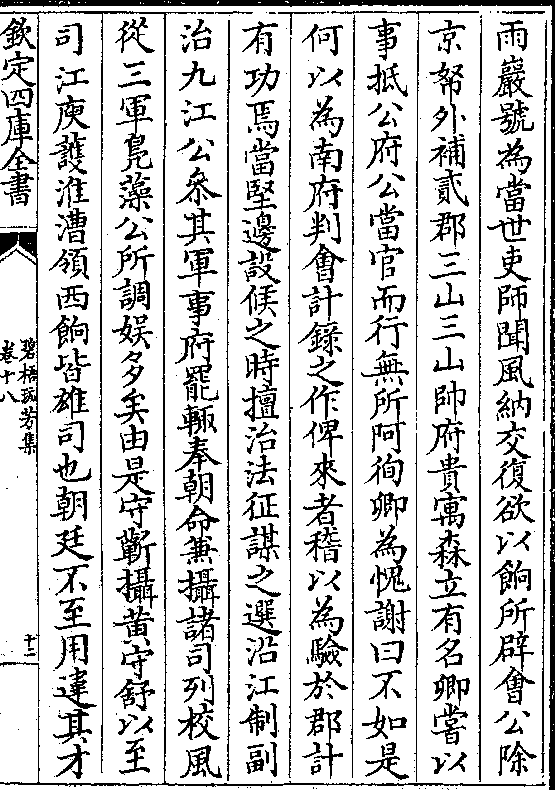 雨巖號為當世吏師聞風納交復欲以餉所辟會公除
京帑外補貳郡三山三山帥府貴寓森立有名卿嘗以
事抵公府公當官而行無所阿徇卿為愧謝曰不如是
何以為南府判㑹計錄之作俾來者稽以為驗於郡計
有功焉當堅邊設候之時擅治法征謀之選沿江制副
治九江公叅其軍事府罷輙奉朝命兼攝諸司列校風
從三軍鳬藻公所調娱多矣由是守蘄攝黄守舒以至
司江庾護淮漕領西餉皆雄司也朝廷不至用違其才
欽定四庫全書
碧梧玩芳集
卷十八
十二